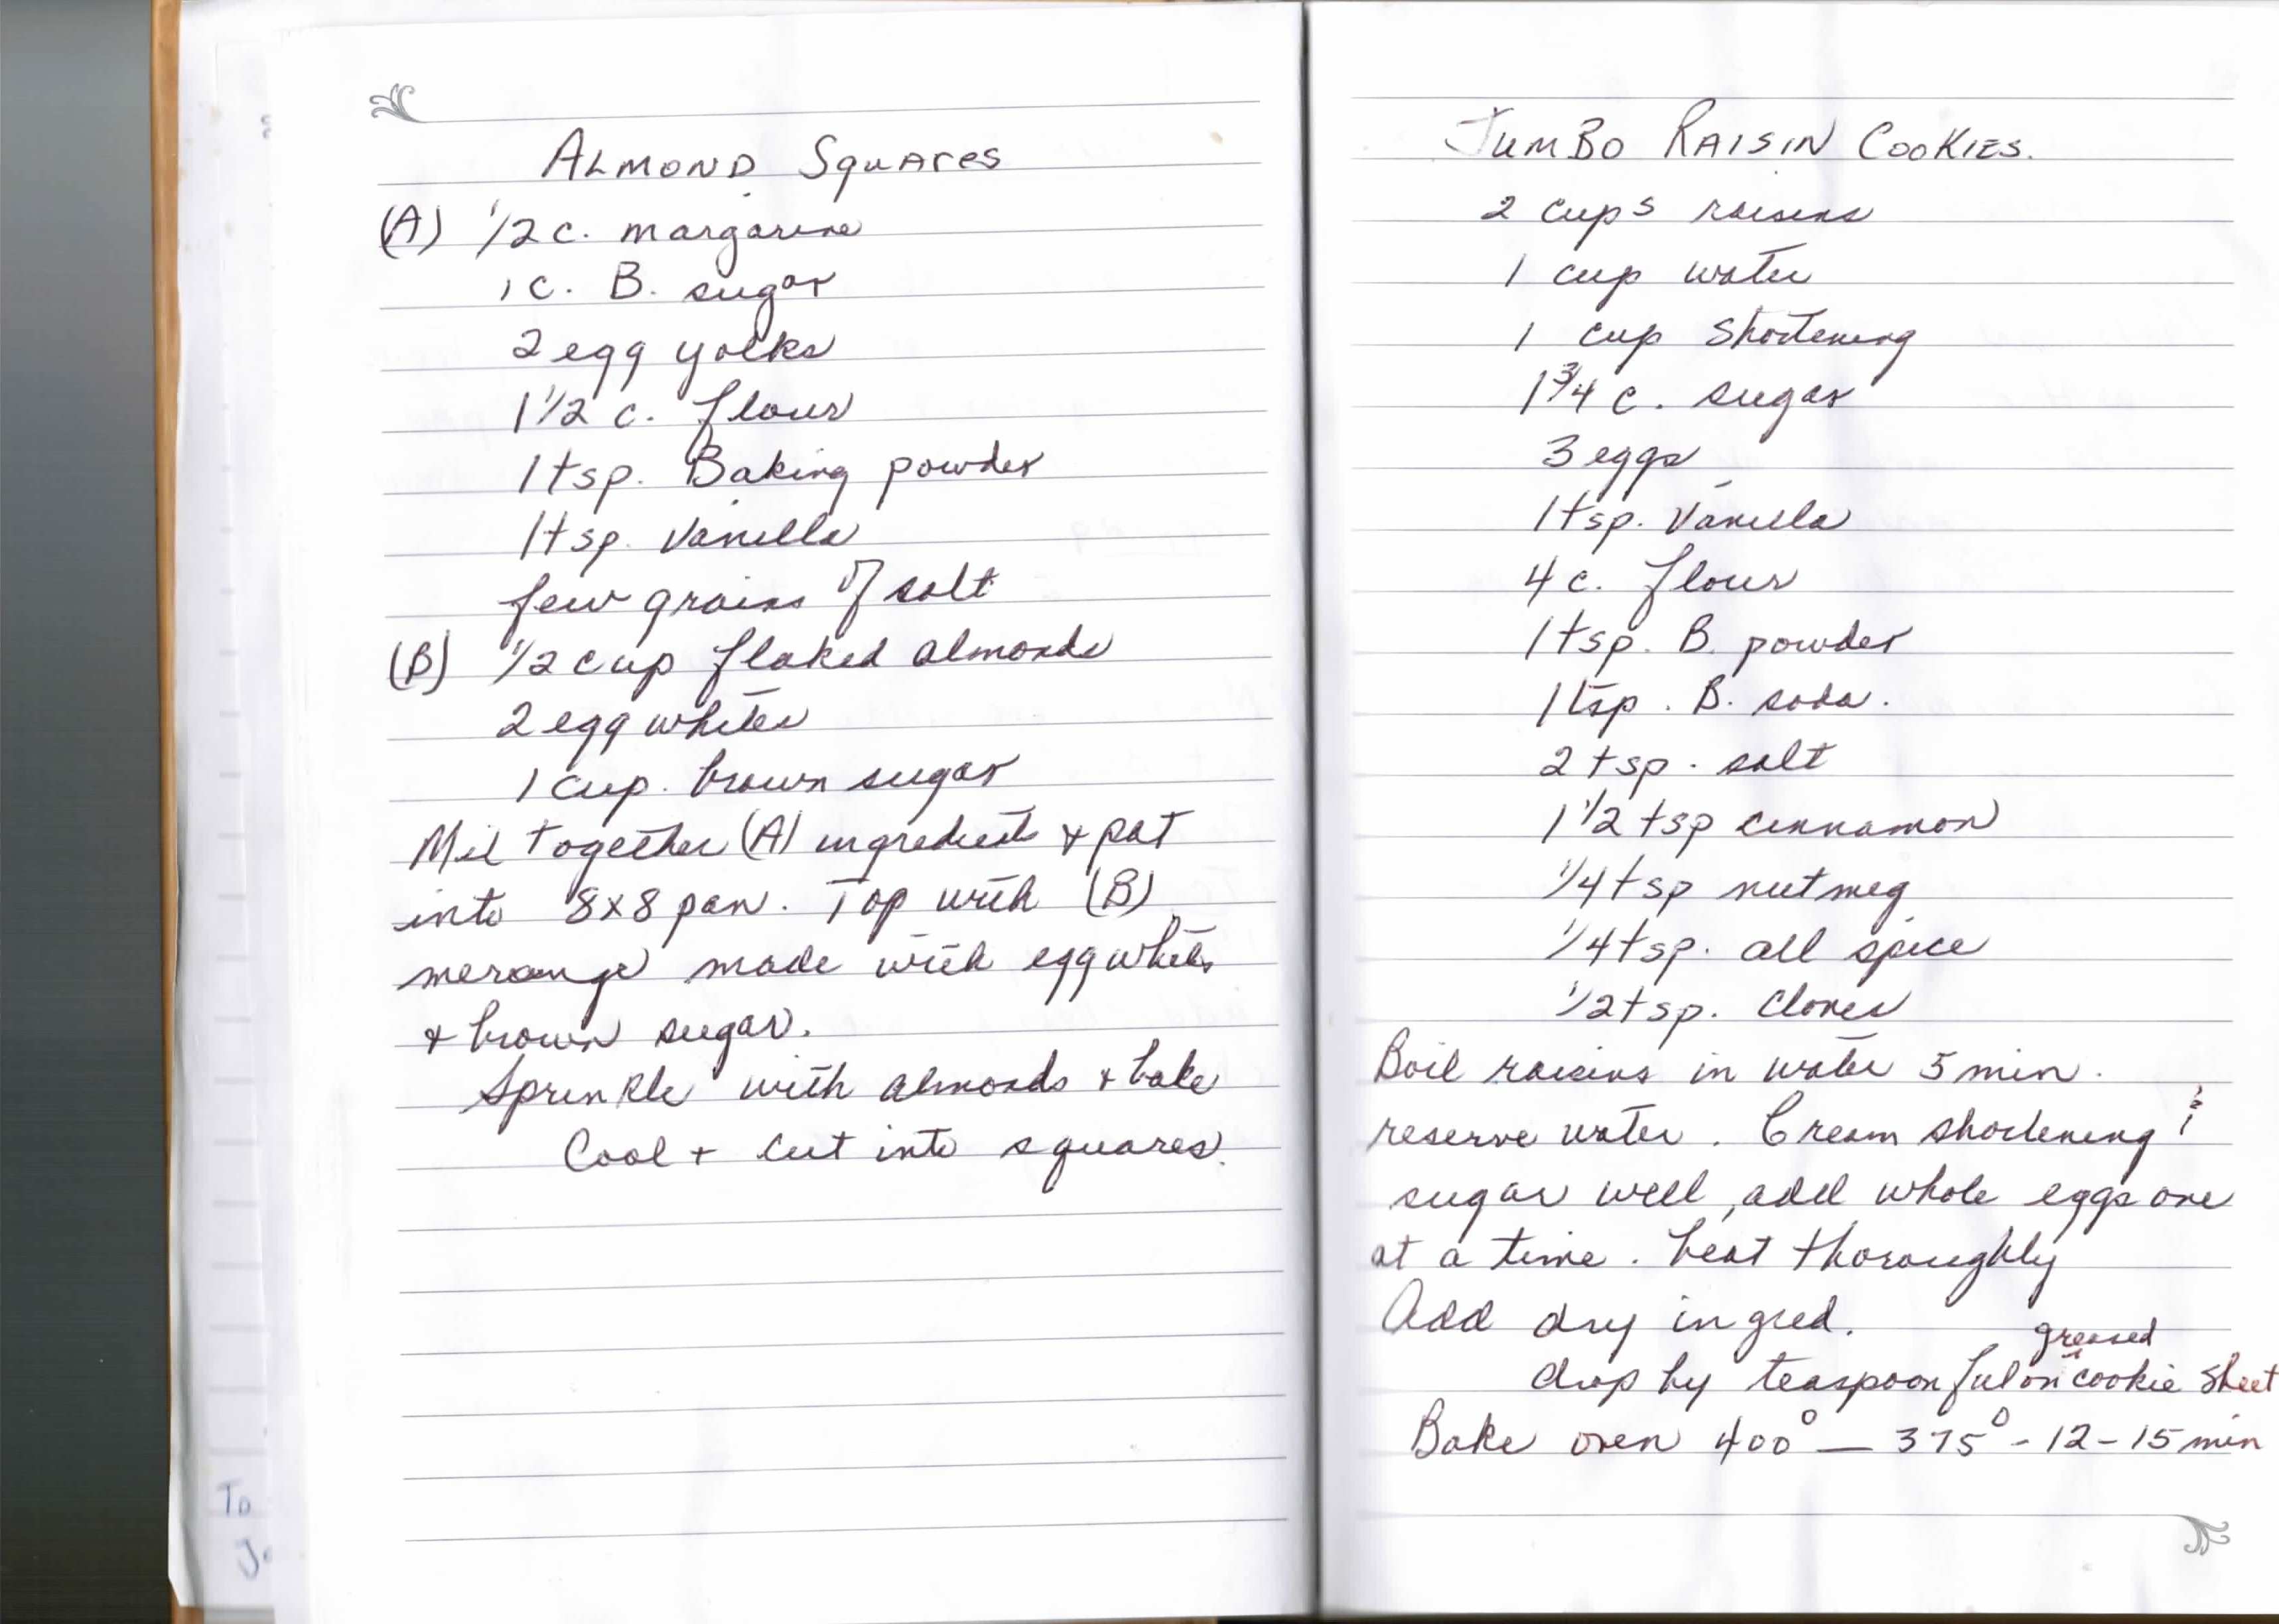 ALMOND SQUARES
(A) 1/2 c. margarine
1 c. B. sugar
2 egg yolks
1 1/2 c. flour
1 tsp. Baking powder
1 tsp. Vanilla
few grains of salt
(B) 1/2 cup flaked almonds
2 egg whites
1 cup. brown sugar
Mix together (A) ingredients & pat
into 8x8 pan. Top with (B)
merange made with egg whites
& brown sugar.
Sprinkle with almonds & bake
Cool + cut into squares.
To
JUMBO RAISIN COOKIES.
2 cups raisins
1 cup water
1 cup shortening
1 3/4 c. sugar
3 eggs
1 tsp. Vanilla
4 c. flour
1 tsp. B. powder
1 tsp. B. soda.
2 tsp. salt
1 1/2 tsp cinnamon
1/4 tsp nutmeg
1/4 tsp. all spice
1/2 tsp. Cloves
Boil raisins in water 5 min.
reserve water. Cream shortening &
sugar well, add whole eggs one
at a time. beat thoroughly
Add dry ingred.
greased
drop by teaspoonful on cookie sheet
Bake oven 400° — 375° - 12-15 min